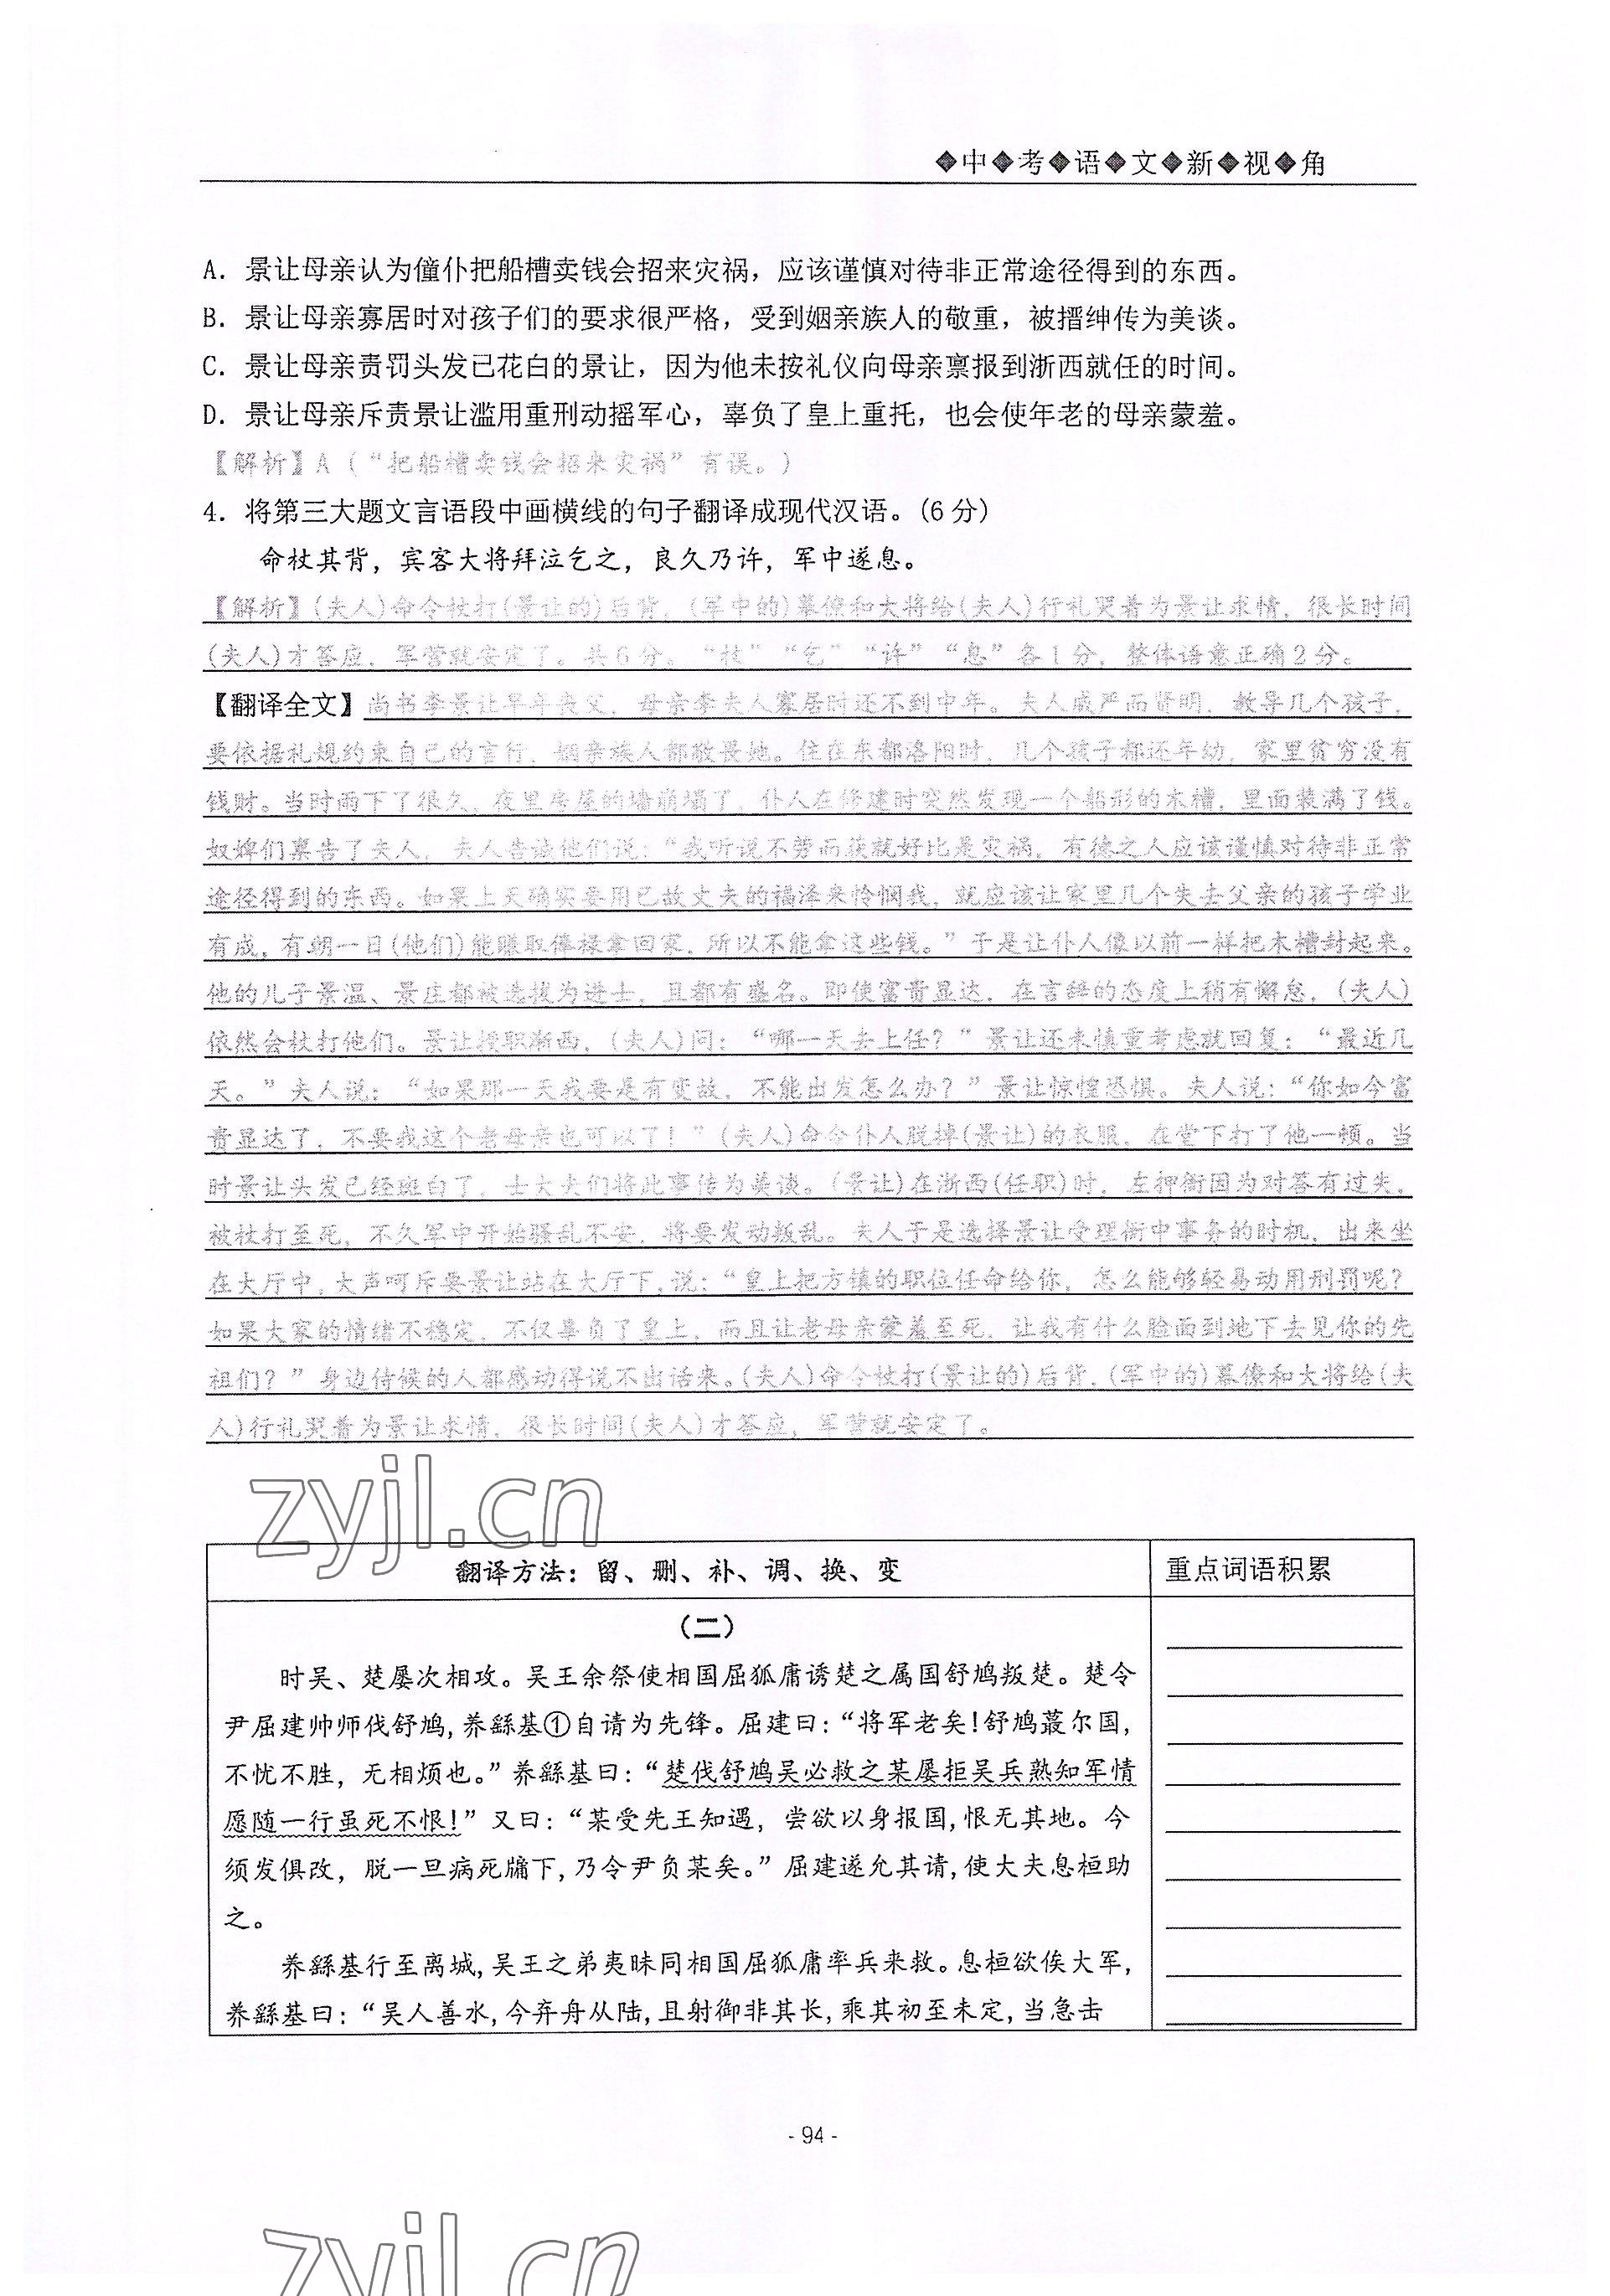 ◆中◆考◆语◆文◆新◆视◆角
A. 景让母亲认为僮仆把船槽卖钱会招来灾祸，应该谨慎对待非正常途径得到的东西。
B. 景让母亲寡居时对孩子们的要求很严格，受到姻亲族人的敬重，被搢绅传为美谈。
C. 景让母亲责罚头发已花白的景让，因为他未按礼仪向母亲禀报到浙西就任的时间。
D. 景让母亲斥责景让滥用重刑动摇军心，辜负了皇上重托，也会使年老的母亲蒙羞。
【解析】A（“把船槽卖钱会招来灾祸”有误。）
4. 将第三大题文言语段中画横线的句子翻译成现代汉语。(6 分)
命杖其背，宾客大将拜泣乞之，良久乃许，军中遂息。
【解析】(夫人)命令杖打(景让的)后背，(军中的)幕僚和大将给(夫人)行礼哭着为景让求情，很长时间
(夫人)才答应，军营就安定了。共6分。“杖”“乞”“许”“息”各1分，整体语意正确2分。
【翻译全文】尚书李景让早年丧父，母亲李夫人寡居时还不到中年。夫人威严而贤明，教导几个孩子，
要依据礼规约束自己的言行，姻亲族人都敬畏她。住在东都洛阳时，几个孩子都还年幼，家里贫穷没有
钱财。当时雨下了很久，夜里房屋的墙崩塌了，仆人在修建时突然发现一个船形的木槽，里面装满了钱。
奴婢们禀告了夫人，夫人告诫他们说：“我听说不劳而获就好比是灾祸，有德之人应该谨慎对待非正常
途径得到的东西。如果上天确实要用已故丈夫的福泽来怜悯我，就应该让家里几个失去父亲的孩子学业
有成，有朝一日(他们)能赚取俸禄拿回家，所以不能拿这些钱。”于是让仆人像以前一样把木槽封起来。
他的儿子景温、景庄都被选拔为进士，且都有盛名。即使富贵显达，在言辞的态度上稍有懈怠，(夫人)
依然会杖打他们。景让授职浙西，(夫人)问：“哪一天去上任？”景让还未慎重考虑就回复：“最近几
天。”夫人说：“如果那一天我要是有变故，不能出发怎么办？”景让惊惶恐惧。夫人说：“你如今富
贵显达了，不要我这个老母亲也可以了！”(夫人)命令仆人脱掉(景让)的衣服，在堂下打了他一顿。当
时景让头发已经斑白了，士大夫们将此事传为美谈。(景让)在浙西(任职)时，左押衙因为对答有过失，
被杖打至死，不久军中开始骚乱不安，将要发动叛乱。夫人于是选择景让受理衙中事务的时机，出来坐
在大厅中，大声呵斥要景让站在大厅下，说：“皇上把方镇的职位任命给你，怎么能够轻易动用刑罚呢？
如果大家的情绪不稳定，不仅辜负了皇上，而且让老母亲蒙羞至死，让我有什么脸面到地下去见你的先
祖们？”身边侍候的人都感动得说不出话来。(夫人)命令杖打(景让的)后背，(军中的)幕僚和大将给(夫
人)行礼哭着为景让求情，很长时间(夫人)才答应，军营就安定了。
zyjl.cn
翻译方法：留、删、补、调、换、变
重点词语积累
(二)
时吴、楚屡次相攻。吴王余祭使相国屈狐庸诱楚之属国舒鸠叛楚。楚令
尹屈建帅师伐舒鸠，养繇基①自请为先锋。屈建曰：“将军老矣！舒鸠蕞尔国，
不忧不胜，无相烦也。”养繇基曰：“楚伐舒鸠吴必救之某屡拒吴兵熟知军情
愿随一行虽死不恨！”又曰：“某受先王知遇，尝欲以身报国，恨无其地。今
须发俱改，脱一旦病死牖下，乃令尹负某矣。”屈建遂允其请，使大夫息桓助
之。
养繇基行至离城，吴王之弟夷昧同相国屈狐庸率兵来救。息桓欲俟大军，
养繇基曰：“吴人善水，今弃舟从陆，且射御非其长，乘其初至未定，当急击
- 94 -
zyjl.cn